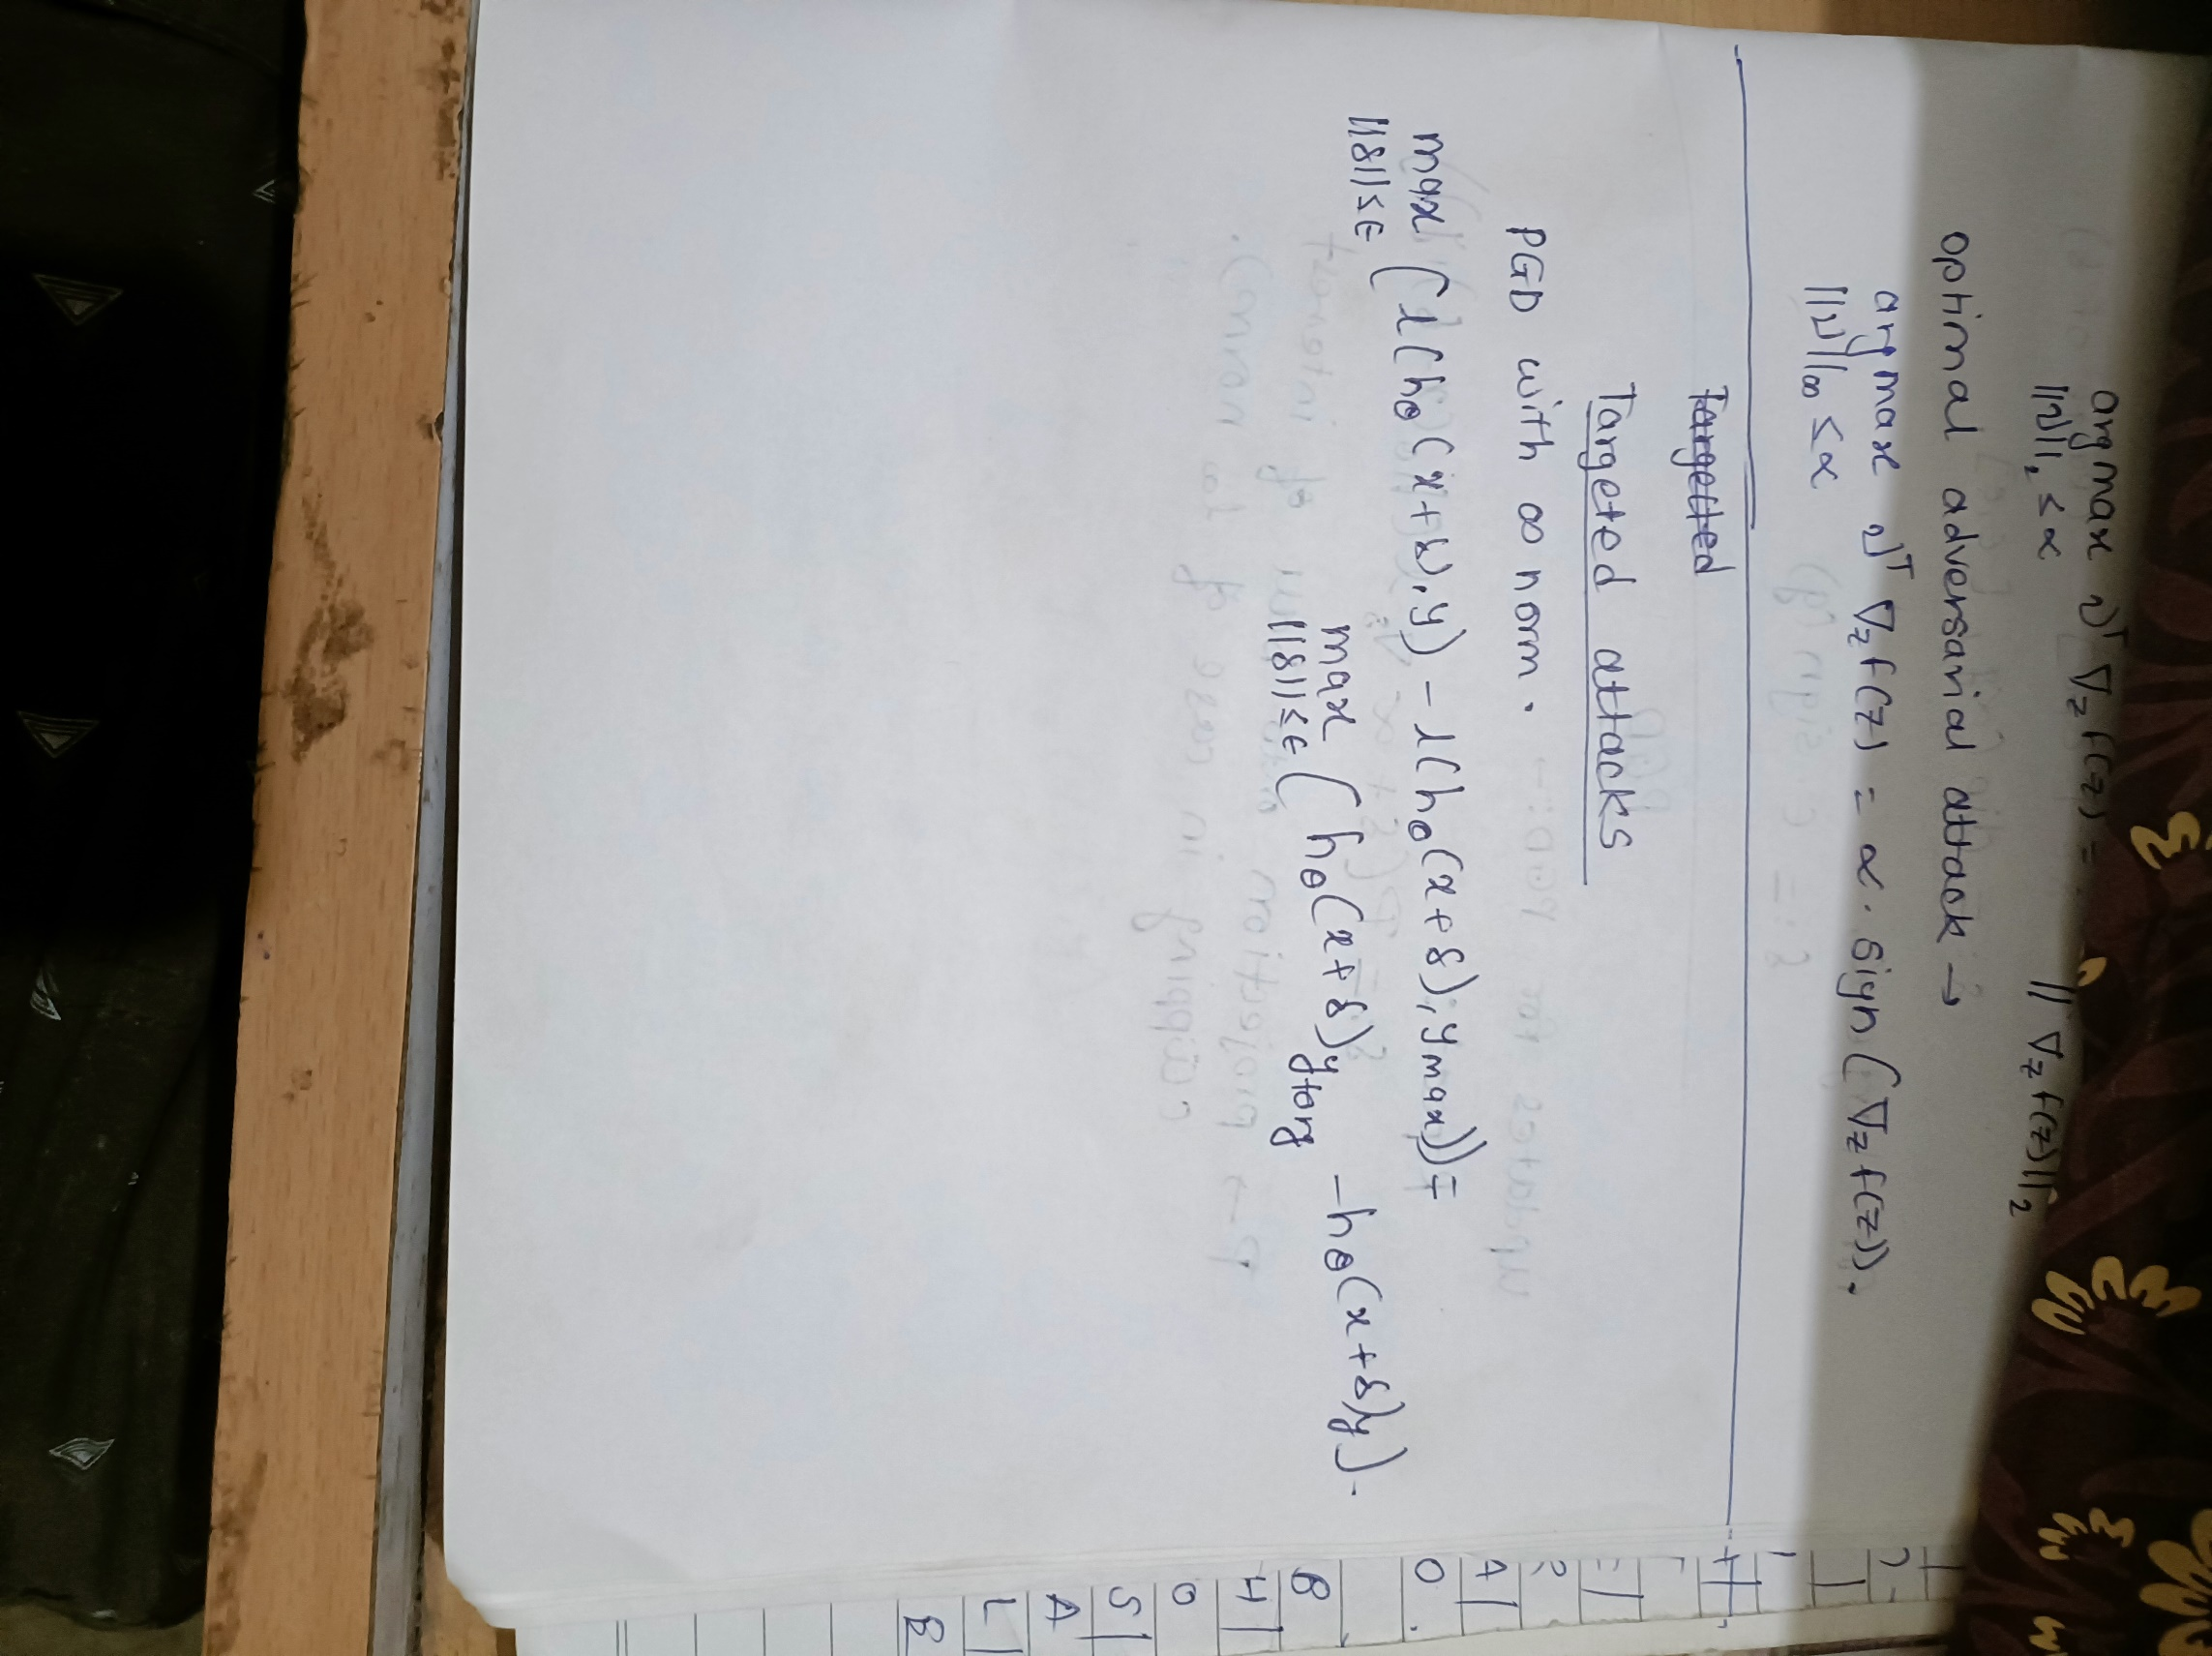 argmax vᵀ ∇z f(z) =
||v||₂ ≤ α
|| ∇z f(z)||₂
optimal adversarial attack →
argmax vᵀ ∇z f(z) = α. sign(∇z f(z)).
||v||∞ ≤ α
Targetted
Targeted attacks
PGD with ∞ norm.
max ( l(hθ(x+δ),y) - l(hθ(x+δ),ymax)) =
||δ||≤ϵ
max ( hθ(x+δ)ytarg - hθ(x+δ)y).
||δ||≤ϵ